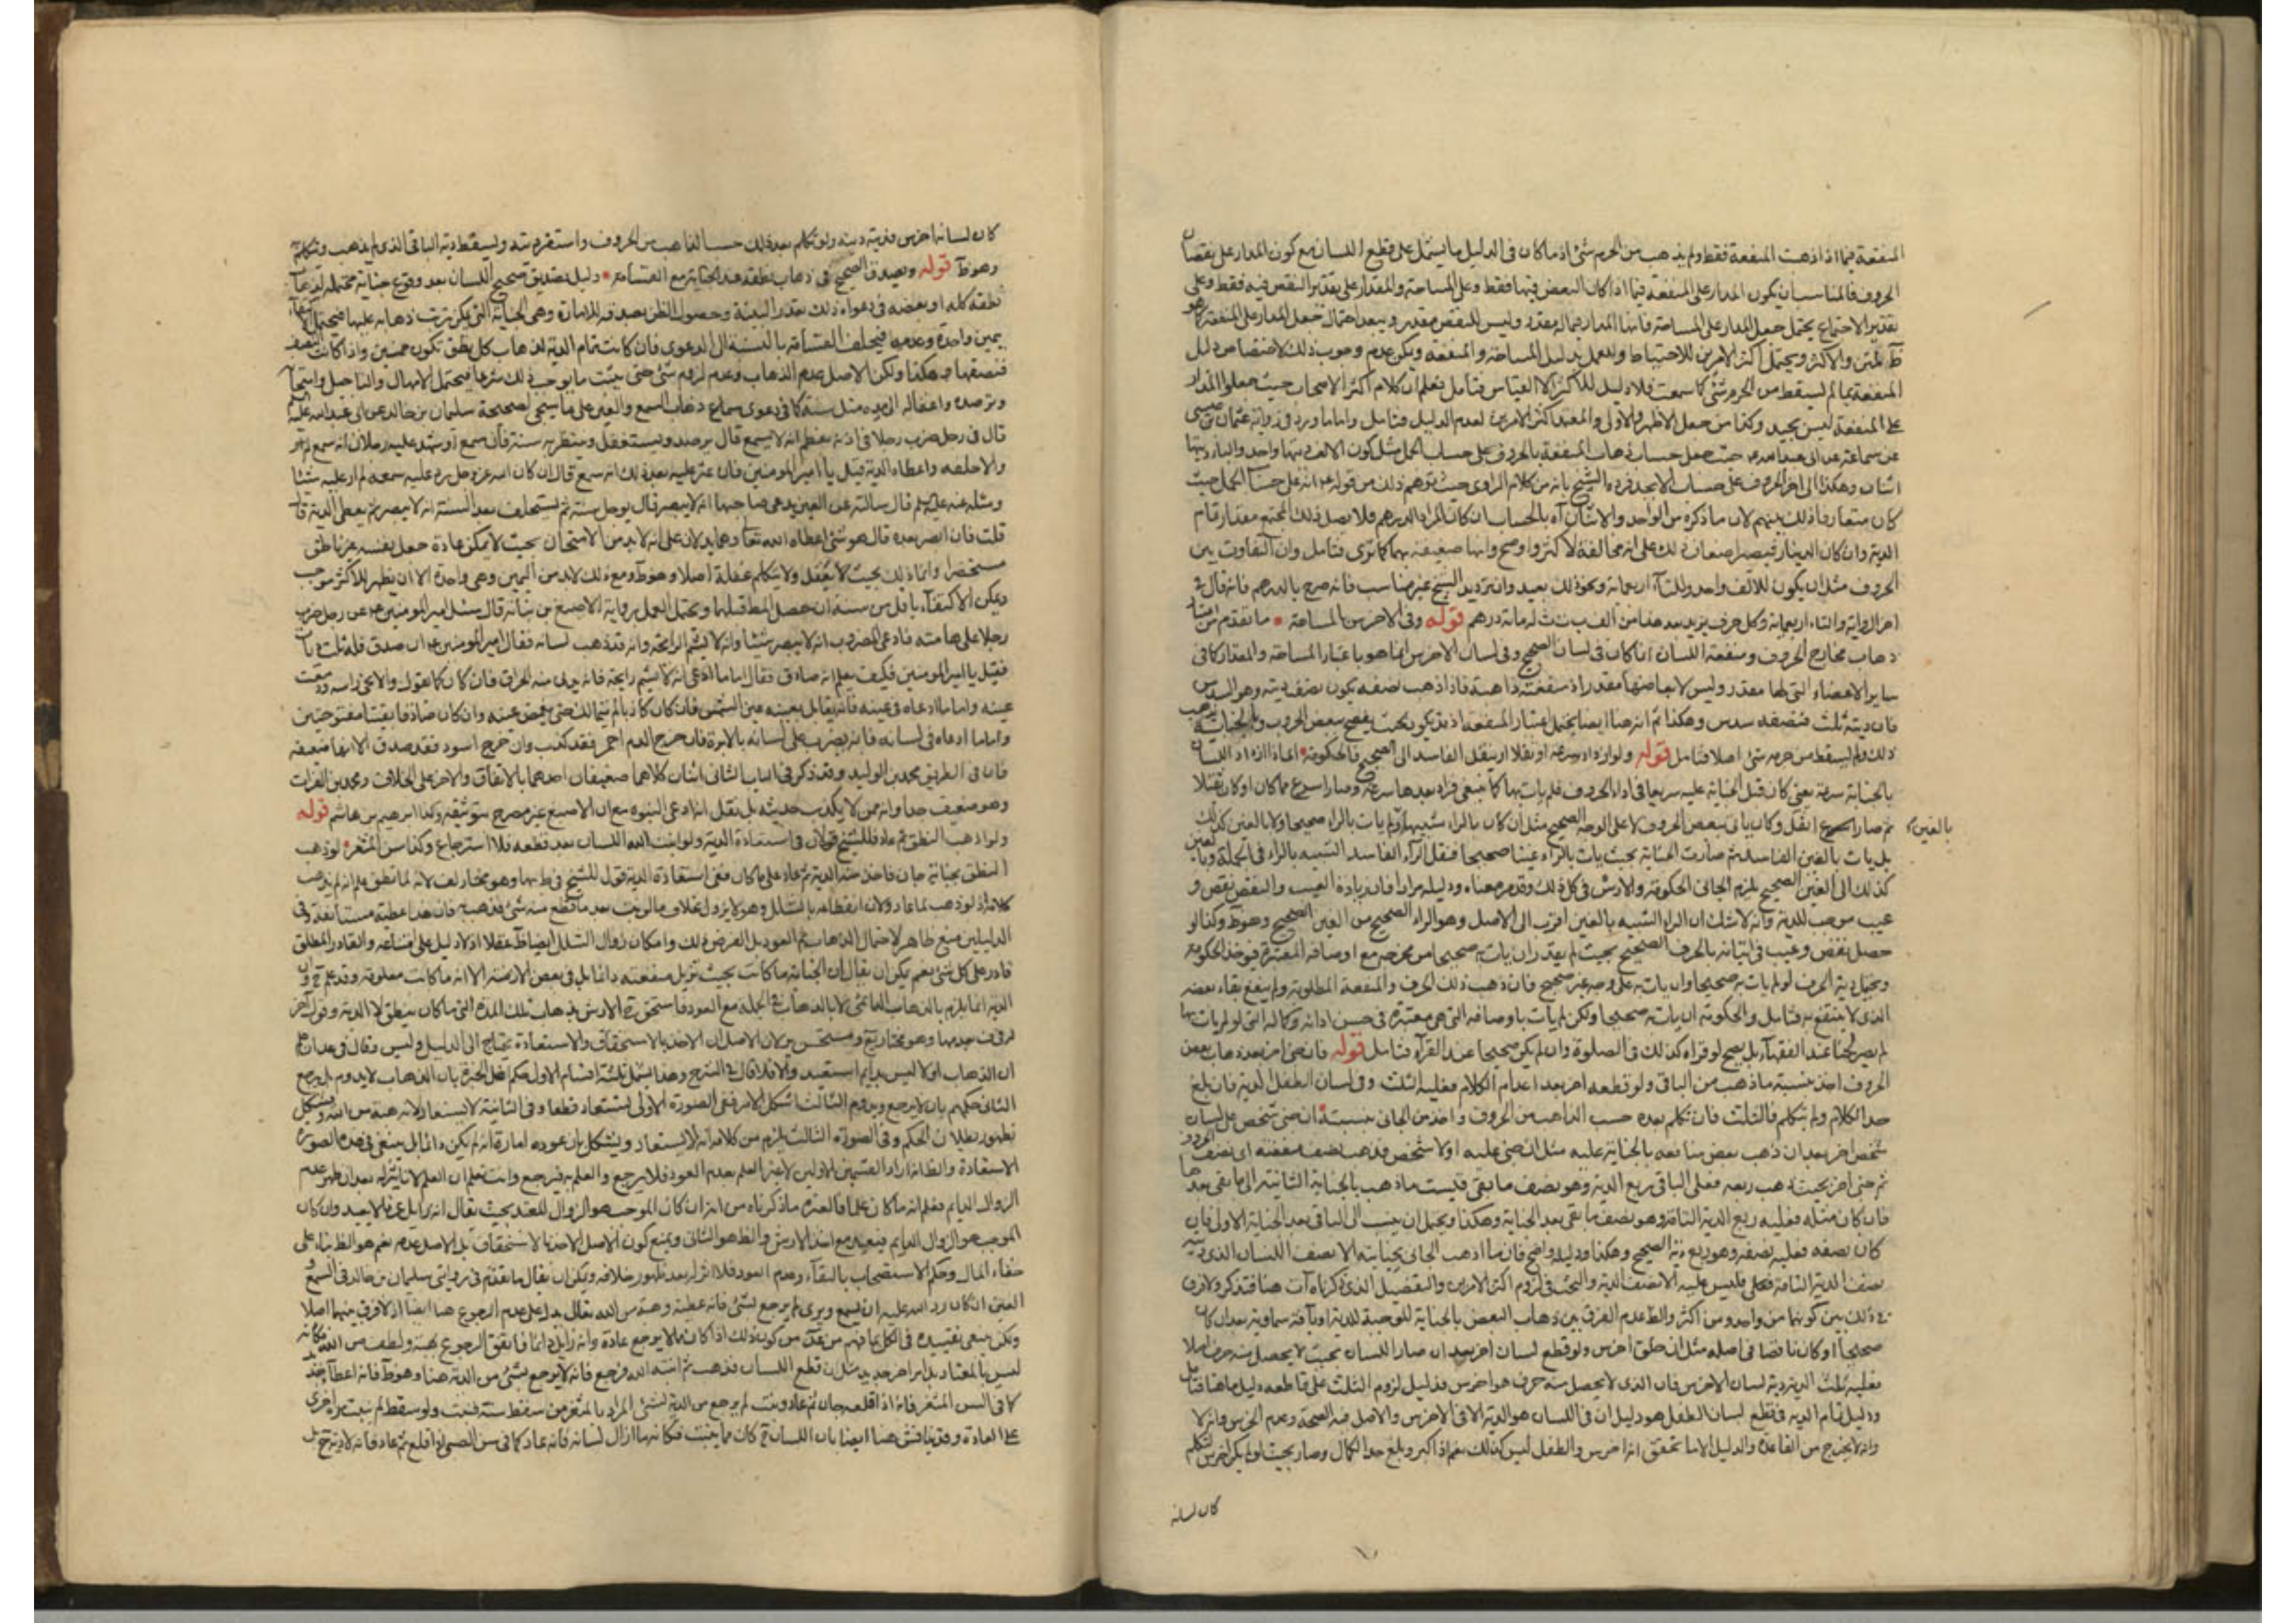 المنفعة فيما اذا ذهبت المنفعة فقط ولم يذهب من الجرم شئ اذ ما كان في الدليل ما يشمل على قطع اللسان مع كون المدار على نقصان
الحروف فالمناسب ان يكون المدار على المنفعة فيما اذا كان البعض فيها فقط وعلى المساحة والمقدار على تقدير النقص فيه فقط وعلى
تقدير الاجتماع يحتمل جعل المدار على المساحة فانها المدار فيماله مقدر وليس للنقص مقدر ويبعد احتمال جعل المدار على المنفعة
والاكثر ويحتمل اكثر الامرين للاحتياط وللعمل بدليل المساحة والمنفعة ويمكن عدم وجوب ذلك لاختصاص دليل
المنفعة بما لم يسقط من الجرم شئ كما سمعت فلا دليل للاكثر الا القياس فتأمل فعلم ان كلام اكثر الاصحاب حيث جعلوا المدار
على المنفعة ليس بجيد وكذا من جعل الاظهر والاولى والمعتمد اكثر الامرين لعدم الدليل فتامل واما ما ورد في رواية عثمان بن عيسى
عن سماعة عن ابي عبد الله حيث جعل حساب ذهاب المنفعة بالحروف على حساب الجمل مثل كون الالف ديتها واحد والباء ديتها
اثنان وهكذا الى اخر الحروف على حساب الابجد فرده الشيخ بانه من كلام الراوي حيث توهم ذلك من قوله انه على حساب الجمل حيث
كان متعارفا ذلك بينهم لان ما ذكره من الواحد والاثنان اه بالحساب ان كان المراد الدرهم فلا يصل ذلك المجتمع مقدار تمام
الدية وان كان الدينار فيصير اضعاف ذلك على انه مخالفة لاكثر واوضح وانها ضعيفة بهما كما ترى فتامل وان التفاوت بين
الحروف مثل ان يكون للالف واحد وللتاء اربعمائة ونحو ذلك بعيد وان ترديد الشيخ غير مناسب فانه صرح بالدرهم فانه قال في
اخر الرواية والتاء اربعمائة وكل حرف يزيد بعد هذا من الف ب ت ث له مائة درهم قوله وفي الاخرس بالمساحة ما تقدم من
ذهاب مخارج الحروف ومنفعة اللسان انما كان في لسان الصحيح وفي لسان الاخرس انما هو باعتبار المساحة والمقدار كما في
ساير الاعضاء التي لها مقدر وليس لابعاضها مقدر اذ منفعته ذاهبة فاذا ذهب نصفه يكون نصف ديته وهو السدس
فان ديته ثلث فنصفه سدس وهكذا ثم انه هنا ايضا يحتمل اعتبار المنفعة اذ قد يكون بحيث يفصح ببعض الحروف وبالجناية يذهب
ذلك ولم يسقط من جرمه شئ اصلا فتامل قوله ولو ازداد سرعة او ثقلا او ينقل الفاسد الى الصحيح فالحكومة اي اذا ازداد اللسان
بالجناية سرعة يعني كان قبل الجناية عليه سريعا في اداء الحروف فلم يات بها كما ينبغي فزاد بعدها سرعة وصار اسرع مما كان او كان ثقيلا
ثم صار اثقل وكان ياتي ببعض الحروف لا على الوجه الصحيح مثل ان كان بالراء شبيها ولم يات بالراء صحيحا ولا بالغين كذلك
بالغين
بل يات بالغين الفاسد ثم صارت الجناية بحيث يات بالراء غينا صحيحا فنقل الراء الفاسد الشبيه بالراء في الجملة
كذلك الى الغين الصحيح يلزم الجاني الحكومة والارش في كل ذلك وقد مر معناه ودليله مرارا فان زيادة العيب والنقص نقص و
عيب موجب للدية وانه لا شك ان الراء الشبيه بالغين اقرب الى الاصل وهو الراء الصحيح من الغين الصحيح وهو ظ وكذا لو
حصل نقص وعيب في اتيانه بالحرف الصحيح بحيث لم يقدر ان يات به صحيحا من مخرجه مع اوصافه المعتبرة فيؤخذ الحكومة
ويحتمل دية الحرف لو لم يات به صحيحا وان يات به على وجه غير صحيح فان ذهب ذلك الحرف والمنفعة المطلوبة ولم ينفع بقاء بعضه
الذي لا ينتفع به فتامل والحكومة ان يات به صحيحا ولكن لم يات باوصافه التي هي معتبرة في حسن ادائه وكماله التي لو لم يات بها
لم يصر لحنا عند الفقهاء بل يصح لو قراه كذلك في الصلوة وان لم يكن صحيحا عند القراء فتامل قوله فان جنى اخر بعد ذهاب بعض
الحروف اخذ بنسبة ما ذهب من الباقي ولو قطعه اخر بعد اعدام الكلام فعليه الثلث وفي لسان الطفل الدية فان بلغ
حد الكلام ولم يتكلم فالثلث فان تكلم بعده حسب الذاهب من الحروف واخذ من الجاني بنسبته ان جنى شخص على لسان
شخص اخر بعد ان ذهب بعض منافعه بالجناية عليه مثل ان جنى عليه اولا شخص فذهب نصف منفعته اي نصف الحروف
ثم جنى اخر بحيث ذهب ربعه فعلى الباقي ربع الدية وهو نصف ما بقي فليست ما ذهب بالجناية الثانية الى ما بقي بعدها
فان كان مثله فعليه ربع الدية التامة وهو نصف ما بقي بعد الجناية وهكذا ويحتمل ان ينسب الى الباقي بعد الجناية الاولى فان
كان نصفه فعليه نصفه وهو ربع دية الصحيح وهكذا ودليله واضح فان ما اذهب الجاني بجنايته الا نصف اللسان الذي فيه
نصف الدية التامة فليس عليه الا نصف الدية والبحث في لزوم اكثر الامرين والتفصيل الذي ذكرناه آت هنا فتذكر ولا فرق
في ذلك بين كونها من واحد ومن اكثر والظ عدم الفرق بين ذهاب البعض بالجناية الموجبة للدية او بافة سماوية بعد ان كان
صحيحا او كان ناقصا في اصله مثل ان خلق اخرس ولو قطع لسان اخر بعد ان صار اللسان بحيث لا يحصل منه حرف اصلا
فعليه ثلث الدية دية لسان الاخرس فان الذي لا يحصل منه حرف هو اخرس فدليل لزوم الثلث على قاطعه دليل ما هنا فتامل
ودليل تمام الدية في قطع لسان الطفل هو دليل ان في اللسان هو الدية الا في الاخرس والاصل فيه الصحة وعدم الخرس وانه لا
وانه لا يخرج من القاعدة والدليل الا ما تحقق انه اخرس والطفل ليس كذلك نعم اذا كبر وبلغ حد الكمال وصار بحيث لو لم يكن اخرس لتكلم
كان لسانه
كان لسانه اخرس فديته ديته ولو تكلم بعد ذلك حسب الذاهب من الحروف واستقر ديته ويسقط دية الباقي الذي لم يذهب وتكلم به
وهو ظ قوله ويصدق الصحيح في ذهاب نطقه عند الجناية مع القسامة دليل تصديق صحيح اللسان بعد وقوع جناية محتملة لذهاب
نطقه كله او بعضه في دعواه ذلك تعذر البينة وحصول الظن بصدقه للامارة وهي الجناية التي يمكن ترتب ذهابه عليها فيحتمل
يمين واحدة وعدمها فيحلف القسامة بالنسبة الى الدعوى فان كانت تمام الدية لذهاب كل نطق تكون خمسين واذا كانت النصف
فنصفها وهكذا ولكن الاصل عدم الذهاب وعدم لزوم شئ حتى يثبت ما يوجب ذلك شرعا فيحتمل الامهال والتاجيل وامتحانه
وترصده واغفاله الى مدة مثل سنة كما في دعوى سماع ذهاب السمع والعين على ما سيجئ لصحيحة سليمان بن خالد عن ابي عبد الله
قال في رجل ضرب رجلا في اذنه بعظم انه لا يسمع قال يرصد ويستغفل وينتظر به سنة فان سمع او شهد عليه رجلان انه سمع
والا حلفه واعطاه الدية قيل يا امير المؤمنين فان عثر عليه بعد ذلك انه سمع قال ان كان الله عز وجل رد عليه سمعه لم ار عليه شيئا
ومثله عنه عليه السلم قال سالته عن العين يدعي صاحبها انه لا يبصر قال يوجل سنة ثم يستحلف بعد السنة انه لا يبصر ثم يعطى الدية قال
قلت فان ابصر بعده قال هو شئ اعطاه الله تعالى وهما يدلان على انه لا بد من الامتحان بحيث لا يمكن عادة جعل نفسه غير ناطق
مستحضرا وانما ذلك بحيث لا يغفل ولا يتكلم غفلة اصلا وهو ظ ومع ذلك لا بد من اليمين وهي واحدة الا ان يظهر للاكثر موجب
ويمكن الاكتفاء باقل من سنة ان حصل المط قبلها ويحتمل العمل برواية الاصبغ بن نباتة قال سئل امير المؤمنين عن رجل ضرب
رجلا على هامته فادعى المضروب انه لا يبصر شيئا وانه لا يشم الرائحة وانه قد ذهب لسانه فقال امير المؤمنين ان صدق فله ثلث ديات
فقيل يا امير المؤمنين فكيف يعلم انه صادق فقال اما ما ادعى انه لا يشم رايحة فانه يدنى منه الحراق فان كان كما يقول والا نحى راسه ودمعت
عينه واما ما ادعاه في عينه فانه يقابل بعينه عين الشمس فان كان كاذبا لم يتمالك حتى يغمض عينه وان كان صادقا بقيتا مفتوحتين
واما ما ادعاه في لسانه فانه يضرب على لسانه بالابرة فان خرج الدم احمر فقد كذب وان خرج اسود فقد صدق الا انها ضعيفة
فان في الطريق محمد بن الوليد وقد ذكر في الباب الثاني اثنان كلاهما ضعيفان احدهما بالاتفاق والاخر على الخلاف ومحمد بن الفرات
وهو ضعيف جدا وانه ممن لا يكتب حديثه بل نقل انه ادعى النبوة مع ان الاصبغ غير مصرح بتوثيقه وكذا ابرهيم بن هاشم قوله
ولو اذهب النطق ثم عاد فللشيخ قولان في استعادة الدية ولو انبت الله اللسان بعد قطعه فلا استرجاع وكذا سن المثغر لو ذهب
النطق بجناية جان فاخذ منه الدية ثم عاد على ما كان ففي استعادة الدية قول للشيخ في ط بها وهو مختار لف لانه لما نطق علم انه لم يذهب
كلامه اذ لو ذهب لما عاد ولان انقطاعه بالشلل وهو لا يزول بخلاف ما لو نبت بعد ما قطع منه شئ فذهب فان هذا عطية مستانفة وفي
الدليلين منع ظاهر لاحتمال الذهاب ثم العود بل الفرض ذلك وامكان زوال الشلل ايضا ظ عقلا اذ لا دليل على امتناعه والقادر المطلق
قادر على كل شئ نعم يمكن ان يقال ان الجناية ما كانت بحيث تزيل منفعته دائما بل في بعض الازمنة الا انه ما كانت معلومة وقد علم ح وان
الدية انما يلزم بالذهاب الدائمي لا بالذهاب في الجملة مع العود فاستحق ح الارش بذهاب تلك المدة التي ما كان ينطق لا الدية وقول اخر
له في ف بعدمها وهو مختار يع ومستحسن ير لان الاصل ان الاخذ بالاستحقاق والاستعادة يحتاج الى الدليل وليس وقال في عد ان علم
ان الذهاب اولا ليس بدايم استعيد والا فلا قال في الشرح وهذا يشمل ثلثة اقسام الاول حكم اهل الخبرة بان الذهاب لا يدوم بل يرجع
الثاني حكمهم بان لا يرجع ويدوم الثالث اشكل الامر ففي الصورة الاولى يستعاد قطعا وفي الثانية لا يستعاد لانه هبة من الله ويشكل
بظهور بطلان الحكم وفي الصورة الثالث يلزم من كلامه انه لا يستعاد ويشكل بان عوده امارة انه لم يكن دائما بل ينبغي في هذه الصورة
الاستعادة والظ انه اراد القسمين الاولين لاعتبر العلم بعدم العود فلا يرجع والعلم به فيرجع وانت تعلم ان العلم لا تاثير له بعد ان ظهر عدم
الزوال الدايم فعلم انه ما كان علما فالعمدة ما ذكرناه من انه ان كان الموجب هو الزوال للمعتد بحيث يقال انه زايل عرفا لا يعيد وان كان
الموجب هو الزوال الدايم فيعيد مع اخذ الارش والظ هو الثاني ويمنع كون الاصل الاخذ بالاستحقاق بل الاصل عدمه نعم هو الظ بناء على
خفاء المال وحكم الاستصحاب بالبقاء وعدم العود فلا اثر له بعد ظهور خلافه ويمكن ان يقال ما تقدم في روايتي سليمان بن خالد في السمع و
العين ان كان رد الله عليه ان يسمع ويرى لم يرجع بشئ فانه عطية وهبة من الله تعالى يدل على عدم الرجوع هنا ايضا اذ لا فرق بينهما اصلا
ولكن ينبغي تقييده في الكل بما فهم من عد من كون ذلك اذا كان مما لا يرجع عادة وانه زايل دائما فاتفق الرجوع بهبة ولطف من الله فكانه
ليس بالمعتاد بل امر اخر جديد مثل ان قطع اللسان فذهب ثم انبته الله فرجع فانه لا يرجع بشئ من الدية هنا وهو ظ فانه اعطاء جديد
كما في السن المثغر فانه اذا قلعه جان ثم عاد ونبت لم يرجع من الدية بشئ المراد بالمثغر من سقط سنه فنبت ولو سقط لم ينبت مرة اخرى
على العادة وقد يناقش هنا ايضا بان اللسان ح كان مما ينبت فكانه ما ازال لسانه فانه عاد كما في سن الصبي لو قلع ثم عاد فانه لا دية ح بل